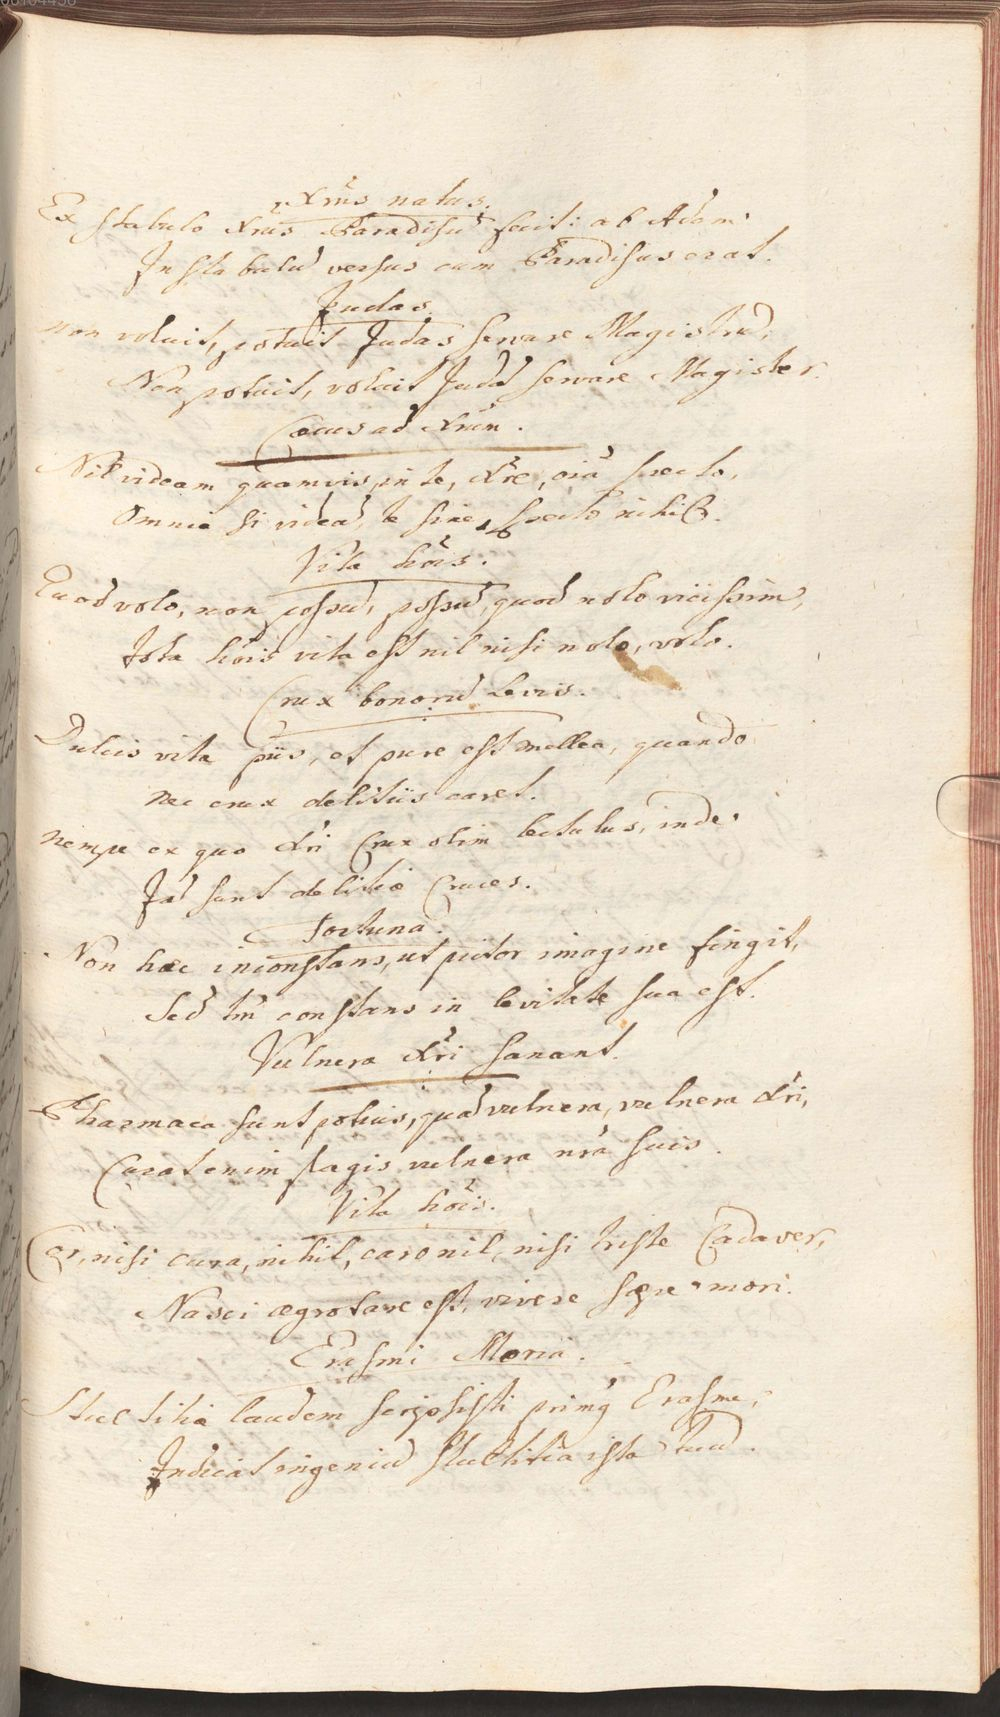 Xrūs natus.
Ex stabulo Xrūs Paradisū fecit: ab Adam
In stabulū versus cum Paradisus erat.
Judas.
non voluit, potuit Judas servare Magistrū,
Non potuit, voluit Judā servare Magister.
Cæcus ad Xrūm.
Nil videam quamvis, in te, Xrē, oīa specto,
Omnia si videā, te sine, specto nihil.
Vita hoīs.
Quod volo, non possū, possū, quod nolo vicissim,
Tota hoīs vita est nil nisi nolo, volo.
Crux bonorū levis.
Dulcis vita piis, et pure est mellea, quando
nec crux delitiis caret.
nempe ex quo Xri Crux olim lectulus, inde
Jā sunt delitiæ Cruces.
Fortuna.
Non hæc inconstans, ut pictor imagine fingit,
Sed tm̄ constans in levitate sua est.
Vulnera Xri sanant.
Pharmaca sunt potius, quā vulnera, vulnera Xri,
Curat enim plagis vulnera nrā suis.
Vita hoīs.
Cor, nisi cura, nihil, caro nil, nisi triste Cadaver,
Nasci ægrotare est, vivere sæpe mori.
Erasmi Moria.
Stultitiæ laudem scripsisti primꝰ Erasme,
Indicat ingeniū stultitia ista tuū.